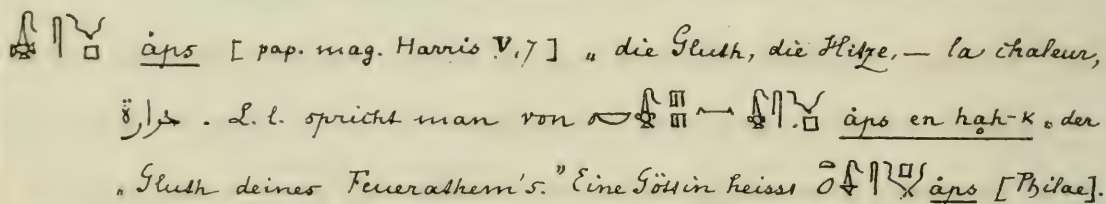 áps [ pap. mag. Harris V, 7 ] „ die Gluth, die Hitze, — la chaleur,
حرارة . L. l. spricht man von áps en hah-k „ der
„ Gluth deines Feuerathem's." Eine Göttin heisst áps [Philae].